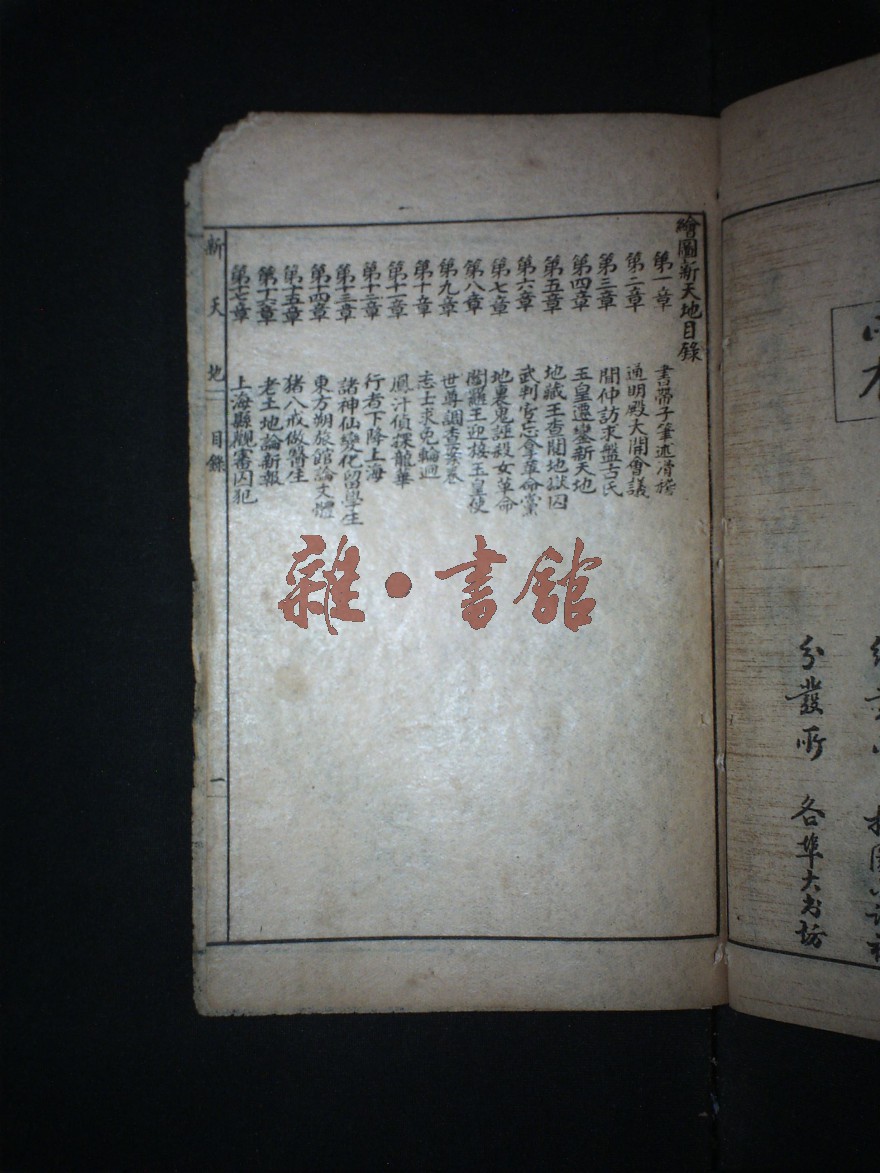 繪圖新天地目錄
第一章 書帶子筆述滑稽
第二章 通明殿大開會議
第三章 聞仲訪求盤古氏
第四章 玉皇遷鑾新天地
第五章 地藏王查閱地獄囚
第六章 武判官忘拿革命黨
第七章 地裏鬼誣殺女革命
第八章 閻羅王迎接玉皇使
第九章 世尊調查案卷
第十章 志士求免輪迴
第十一章 偵探龍華
第十二章 行者下降上海
第十三章 諸神仙變化留學生
第十四章 東方朔旅館論文體
第十五章 猪八戒做醫生
第十六章 老土地論新報
第十七章 上海縣靚審囚犯
新天地 目錄 一
分發所 各埠大书坊
雜·書館